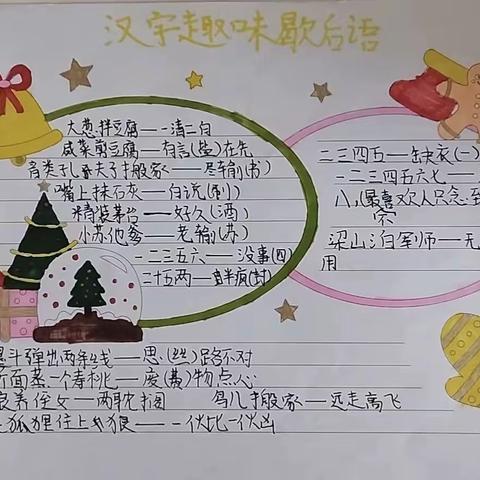 汉字趣味歇后语
大葱拌豆腐——一清二白
咸菜煎豆腐——有言(盐)在先
孔夫子搬家——尽输(书)
嘴上抹石灰——白说(刷)
精装茅台——好久(酒)
小苏他爹——老输(苏)
一二三五六——没事(四)
二十五两——半疯(封)
二三四五——缺衣(一)
一二三四五六七——
八,(最喜欢人只念到
梁山泊军师——无
用
斗弹出两条线——思(丝)路不对
面蒸一个寿桃——废(费)物点心
养侄女——两耽搁 鸟儿搬家——远走高飞
狐狸住上  狼——一伙比一伙凶